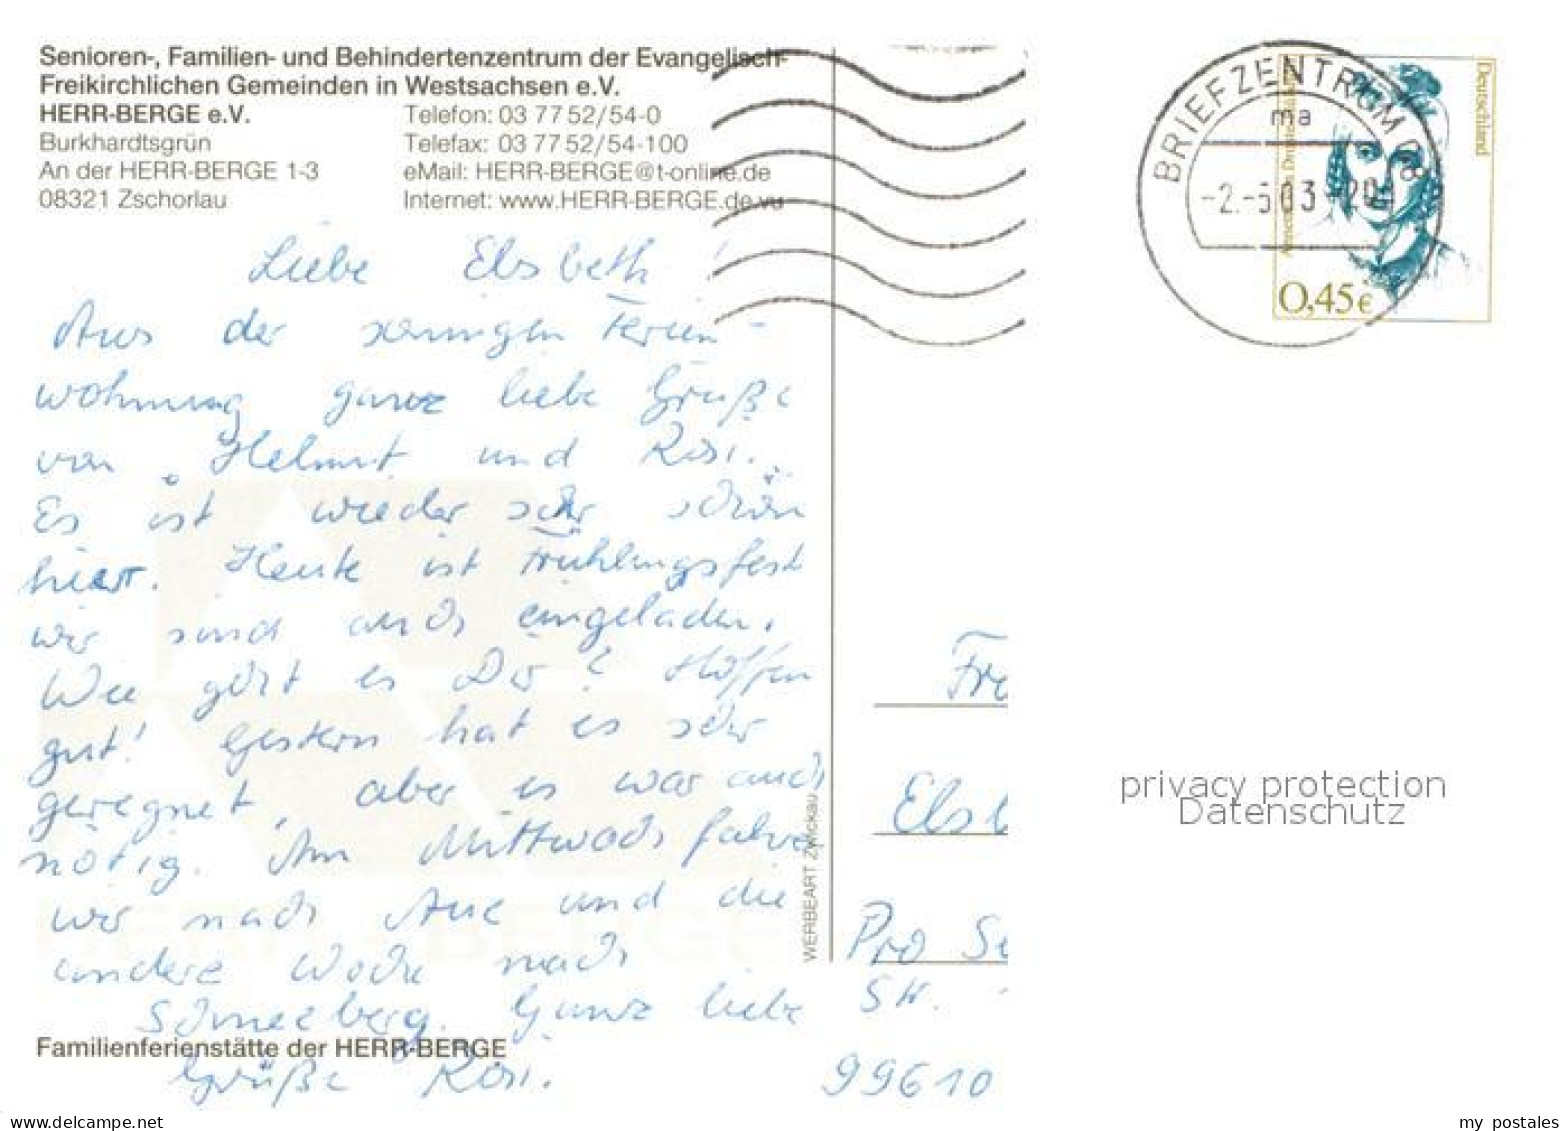 Senioren-, Familien- und Behindertenzentrum der Evangelisch-
Freikirchlichen Gemeinden in Westsachsen e.V.
HERR-BERGE e.V.
Burkhardtsgrün
An der HERR-BERGE 1-3
08321 Zschorlau
Telefon: 03 77 52/54-0
Telefax: 03 77 52/54-100
eMail: HERR-BERGE@t-online.de
Internet: www.HERR-BERGE.de.vu
Liebe Elsbeth!
Aus der sonnigen Ferien-
wohnung ganz liebe Grüße
von Helmut und Rosi.
Es ist wieder sehr schön
hier. Heute ist Frühlingsfest
wir sind auch eingeladen.
Wie geht es Dir? Hoffen
gut! Gestern hat es sehr
geregnet, aber es war auch
nötig. Am Mittwoch fahren
wir nach Aue und die
andere Woche nach
Schneeberg. Ganz liebe
Grüße Rosi.
Familienferienstätte der HERR-BERGE
HERR-BERGE
WERBEART Zwickau
BRIEFZENTRUM 08
ma
-2.-5.03-20
Deutschland
0,45€
Fra
Elsb
Pro Se
SW.
99610
privacy protection
Datenschutz
www.delcampe.net
my_postales